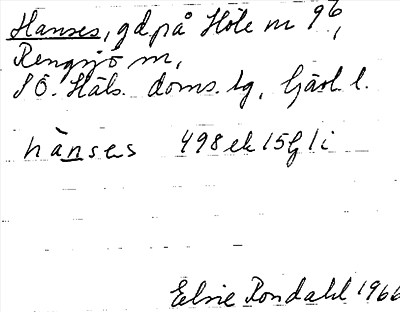 Hanses, gd på Höle nr 96,
Rengsjö sn,
SÖ. Häls. doms. lg, Gävl. l.
hanses 498 ek 15 G 1 i
Elsie Rondahl 1966